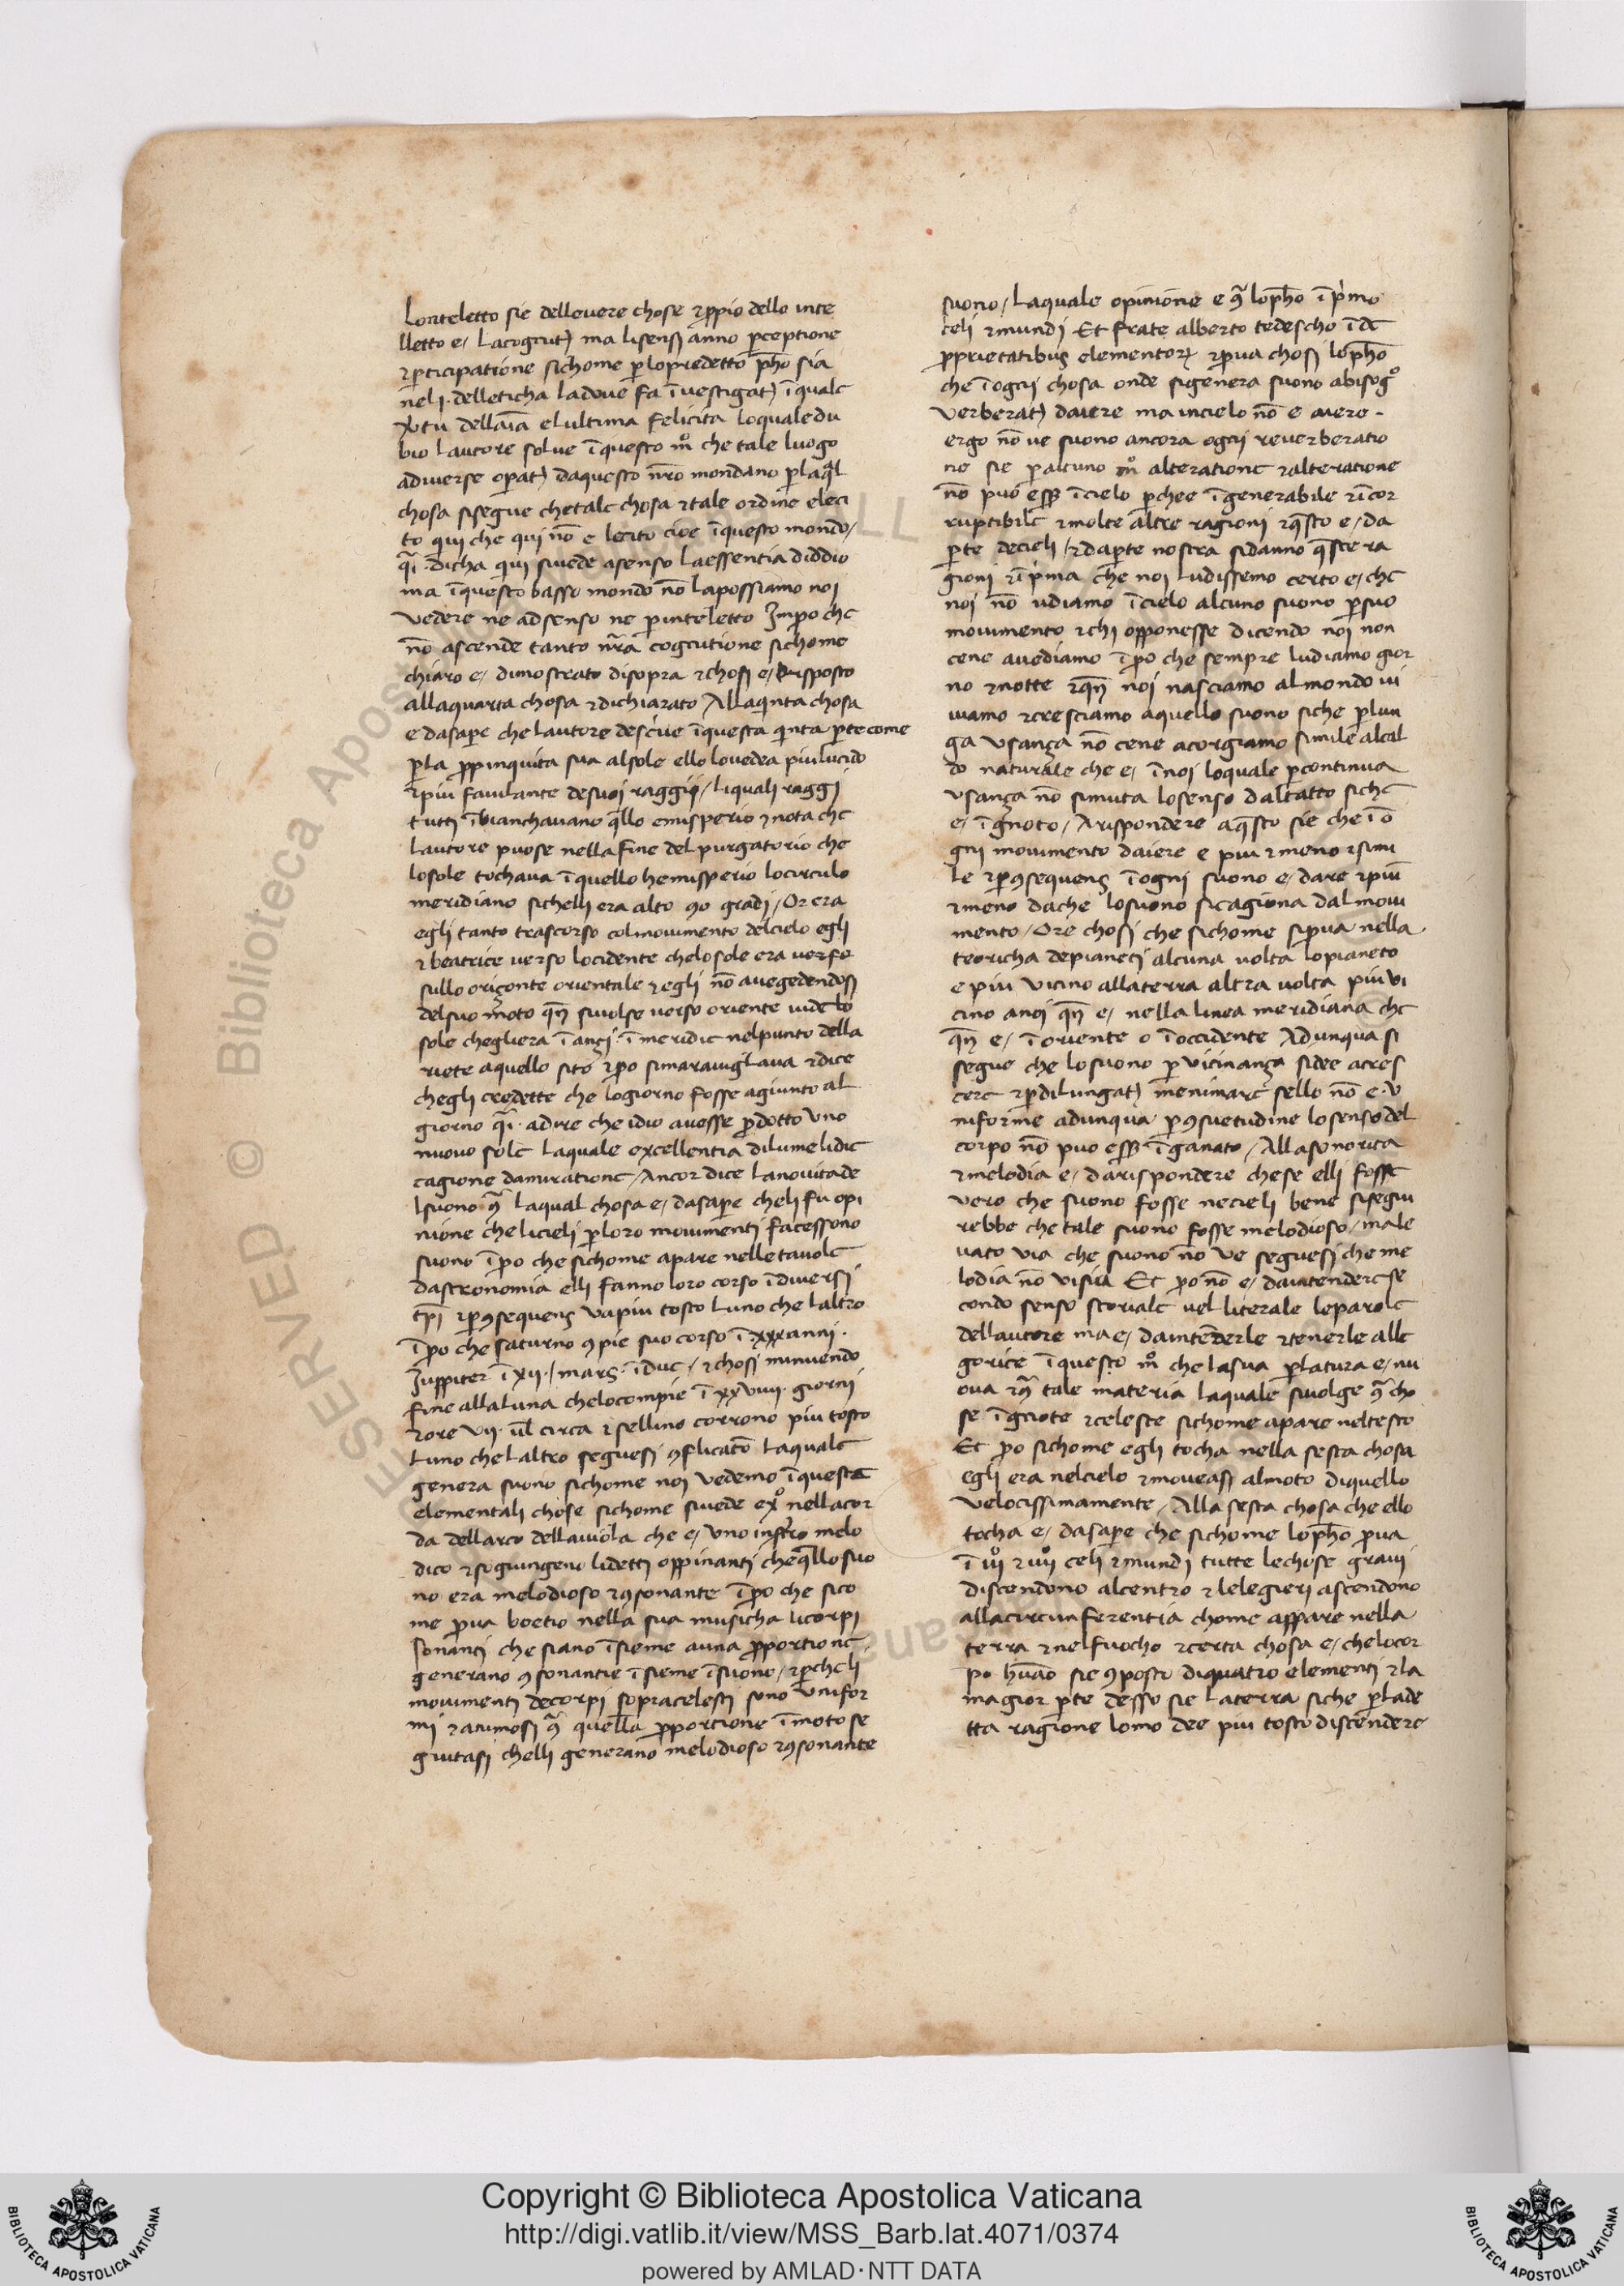 Lonteletto sie dellevere chose ꝛꝓpio dello inte
lletto e/ Lacogniti ma lisensi anno ꝑceptione
ꝛꝑticipatione sichome ꝑlopredetto pħo sia
nel i· delleticha ladove fa ĩvestigati ĩquale
tu dellaĩa elultima felicita loqualedu
bio lautore solve ĩquesto m̊ che tale luogo
adiverse oꝑati daquesto nr̃o mondano ꝑlaql̃
chosa sisegue chetale chosa ꝛtale ordine eleci
to qui che qui nõ e lecito cioe ĩquesto mondo/
q̃i dicha qui sivede asenso laessentia diddio
ma ĩquesto basso mondo nõ lapossiamo noi
vedere ne adsenso ne ꝑinteletto Imꝑo che
nõ ascende tanto nr̃a cognitione sichome
chiaro e/ dimostrato disopra ꝛchosi e/ risposto
allaquarta chosa ꝛdichiarato Allaqinta chosa
e dasaꝑe che lautore descive ĩquesta qinta ꝑtecome
ꝑla ꝓpinquita sua alsole ello lovedea piulucido
ꝛpiu favilante desuoi raggii/ liquali raggi
tutti ĩbianchavano q̃llo emisperio ꝛnota che
lautore puose nella fine del purgatorio che
losole tochava ĩquello hemisperio locirculo
meridiano sichelli era alto 90 gradi/ Or era
egli tanto trascorso colmovimento delcielo egli
ꝛbeatrice verso locidente chelosole era verso
sullo oriçonte orientale ꝛegli nõ avegedendosi
delsuo moto qñ sivolse verso oriente vide lo
sole chegliera ĩançi· ĩ meridie nelpunto della
riete aquello sito ꝛꝑo simaravigLava ꝛdice
chegli credette che logiorno fosse agiunto al
giorno q̃i· adire che idio avesse ꝓdotto uno
nuovo sole Laquale excellentia dilume lidie
cagione damiratione/ Ancor dice lanovitade
lsuono ꝯ̃ Laqual chosa e/ dasaꝑe cheli fu opi
nione chelicieli ꝑloro movimenti facessono
suono ĩꝑo che sichome apare nelletavole
dastronomia elli fanno loro corso ĩdiversi
tp̃i ꝛꝑꝯsequens vapiu tosto luno che laltro
ĩꝑo che saturno ꝯpie suo corso ĩ xxxanni·
Iuppiter ĩ xii·/ mars· ĩ due/ ꝛchosi minuendo
fine allaluna chelocompie ĩ xxviiii· giorni
ꝛore vii· ul̃ circa ꝛsellino corrono piu tosto
luno chelaltro seguesi ꝯflicatõ Laquale
genera suono sichome noi vedemo ĩquesta
elementali chose sichome sivede ex̊ nellacor
da dellarco dellaviola che e/ uno instr̃o melo
dico ꝛsogiungeno lidetti oppinanti cheq̃llo suo
no era melodioso ꝛꝯsonante ĩꝑo che sico
me ꝓva boetio nella sua musicha licorpi
sonanti che siano ĩsieme auna ꝓportione
generano ꝯsonantie ĩsieme ĩsuono/ ꝛꝑcheli
movimenti decorpi sopracelesti sono unifor
mi ꝛatimosi ꝯ̃ quella ꝓportione ĩmoto se
guitasi chelli generano melodioso ꝛꝯsonante
suono/ Laquale opinione e ꝯ̃ lopħo ĩ pimo
celi ꝛmundi Et frate alberto tedescho ĩ d̃
ꝓprietatibus elementoꝝ ꝛꝓva chosi lopħo
che ĩogni chosa onde sigenera suono abisog̊
verberati daiere ma incielo nõ e aiere·
ergo nõ ve suono ancora ogni reverberatio
ne sie ꝑalcuno m̊ alteratione ꝛalteratione
nõ puo eẜẜ ĩcielo ꝑchee ĩgenerabile ꝛĩcor
ruptibile ꝛmolte altre ragioni ꝛq̃sto e/ da
ꝑte decieli/ ꝛdaꝑte nostra sidanno q̃ste ra
gioni ꝛĩ pima che noi ludissemo certo e/ che
noi nõ udiamo ĩcielo alcuno suono ꝑsuo
movimento ꝛchi opponesse dicendo noi non
cene avediamo ĩꝑo che sempre ludiamo gior
no ꝛnotte ꝛqñ noi nasciamo almondo vi
viamo ꝛcresciamo aquello suono siche ꝑlun
ga usança nõ cene acorgiamo simile alcal
do naturale che e/ ĩnoi loquale ꝑcontinua
usança nõ simuta losenso daltatto siche
e/ ĩgnoto/ Arispondere aq̃sto sie che ĩ o
gni movimento daiere e piu ꝛmeno ꝛsimi
le ꝛꝑꝯsequens ĩogni suono e/ dare ꝛpiu
ꝛmeno dache losuono sicagiona dal movi
mento/ Ore chosi che sichome siꝓva nella
teoricha depianeti alcuna volta lopianeto
e piu vicino allaterra altra volta piu vi
cino anoi qñ e/ nella linea meridiana che
qñ e/ ĩoriente o ĩoccidente Adunqua si
segue che losuono ꝑ vicinança sidee acres
cere ꝛꝑdilungati menimare sello nõ e· u
niforme adunqua ꝑꝯsuetudine losensodel
corpo nõ puo eẜẜ ĩganato/ Allasonorita
ꝛmelodia e/ darispondere chese elli fosse
vero che suono fosse necieli bene sisegui
rebbe chetale suono fosse melodioso/ male
vato via che suono nõ ve seguesi che me
lodia nõ visia Et ꝑo nõ e/ daintendere se
condo senso storiale vel literale leparole
dellautore ma e/ daintẽderle ꝛtenerle alle
gorice ĩquesto m̊ che lasua ꝑlatura e/ nu
ova ꝛꝯ̃ tale materia laquale sivolge ꝯ̃ cho
se ĩgniote ꝛceleste sichome apare neltesto
Et ꝑo sichome egli tocha nella sesta chosa
egli era nelcielo ꝛmoveasi almoto diquello
velocissimamente/ Alla sesta chosa che ello
tocha e/ dasaꝑe che sichome lopħo ꝓva
ĩ iii̊ ꝛiiii̊ celi ꝛmundi tutte lechose gravi
discendono alcentro ꝛlelegieri ascendono
allacircunferentia chome appare nella
terra ꝛnelfuocho ꝛcerta chosa e/ chelocor
po huão sie ꝯposto diquatro elementi ꝛla
magior ꝑte desso sie laterra siche ꝑlade
tta ragione lomo dee piu tosto discendere
Copyright © Biblioteca Apostolica Vaticana
http://digi.vatlib.it/view/MSS_Barb.lat.4071/0374
powered by AMLAD·NTT DATA
BIBLIOTECA APOSTOLICA VATICANA
BIBLIOTECA APOSTOLICA VATICANA